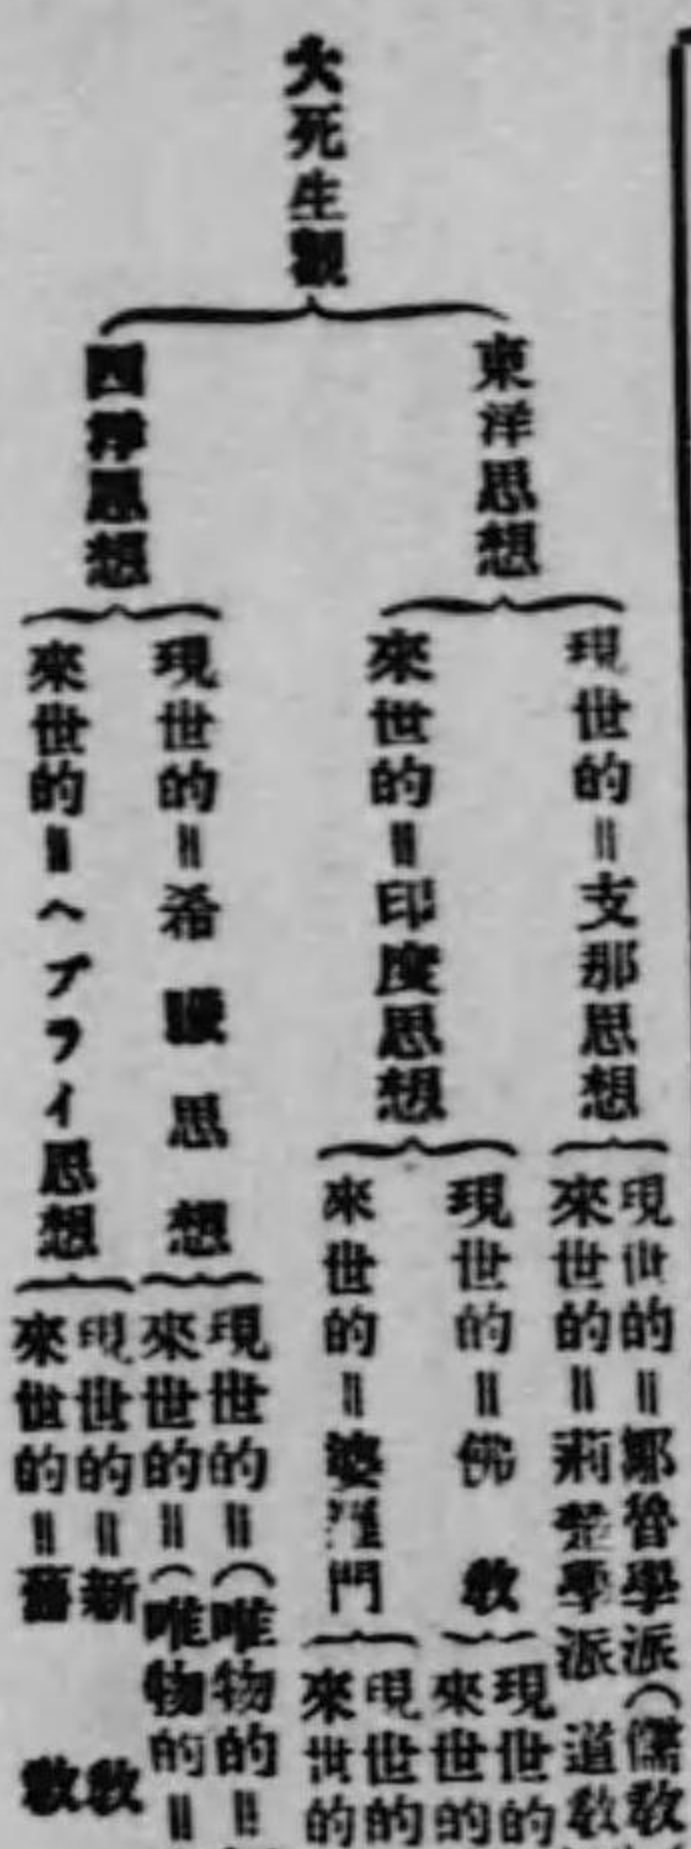 大死生觀
東洋思想
現世的＝支那思想
現世的＝鄒魯學派（儒敎
來世的＝荊楚學派 道敎
來世的＝印度思想
現世的＝佛敎
現世的
來世的
來世的＝婆羅門
現世的
來世的
西洋思想
現世的＝希臘思想
現世的＝（唯物的＝
來世的＝（唯物的＝
來世的＝ヘブライ思想
現世的＝新敎
來世的＝舊敎